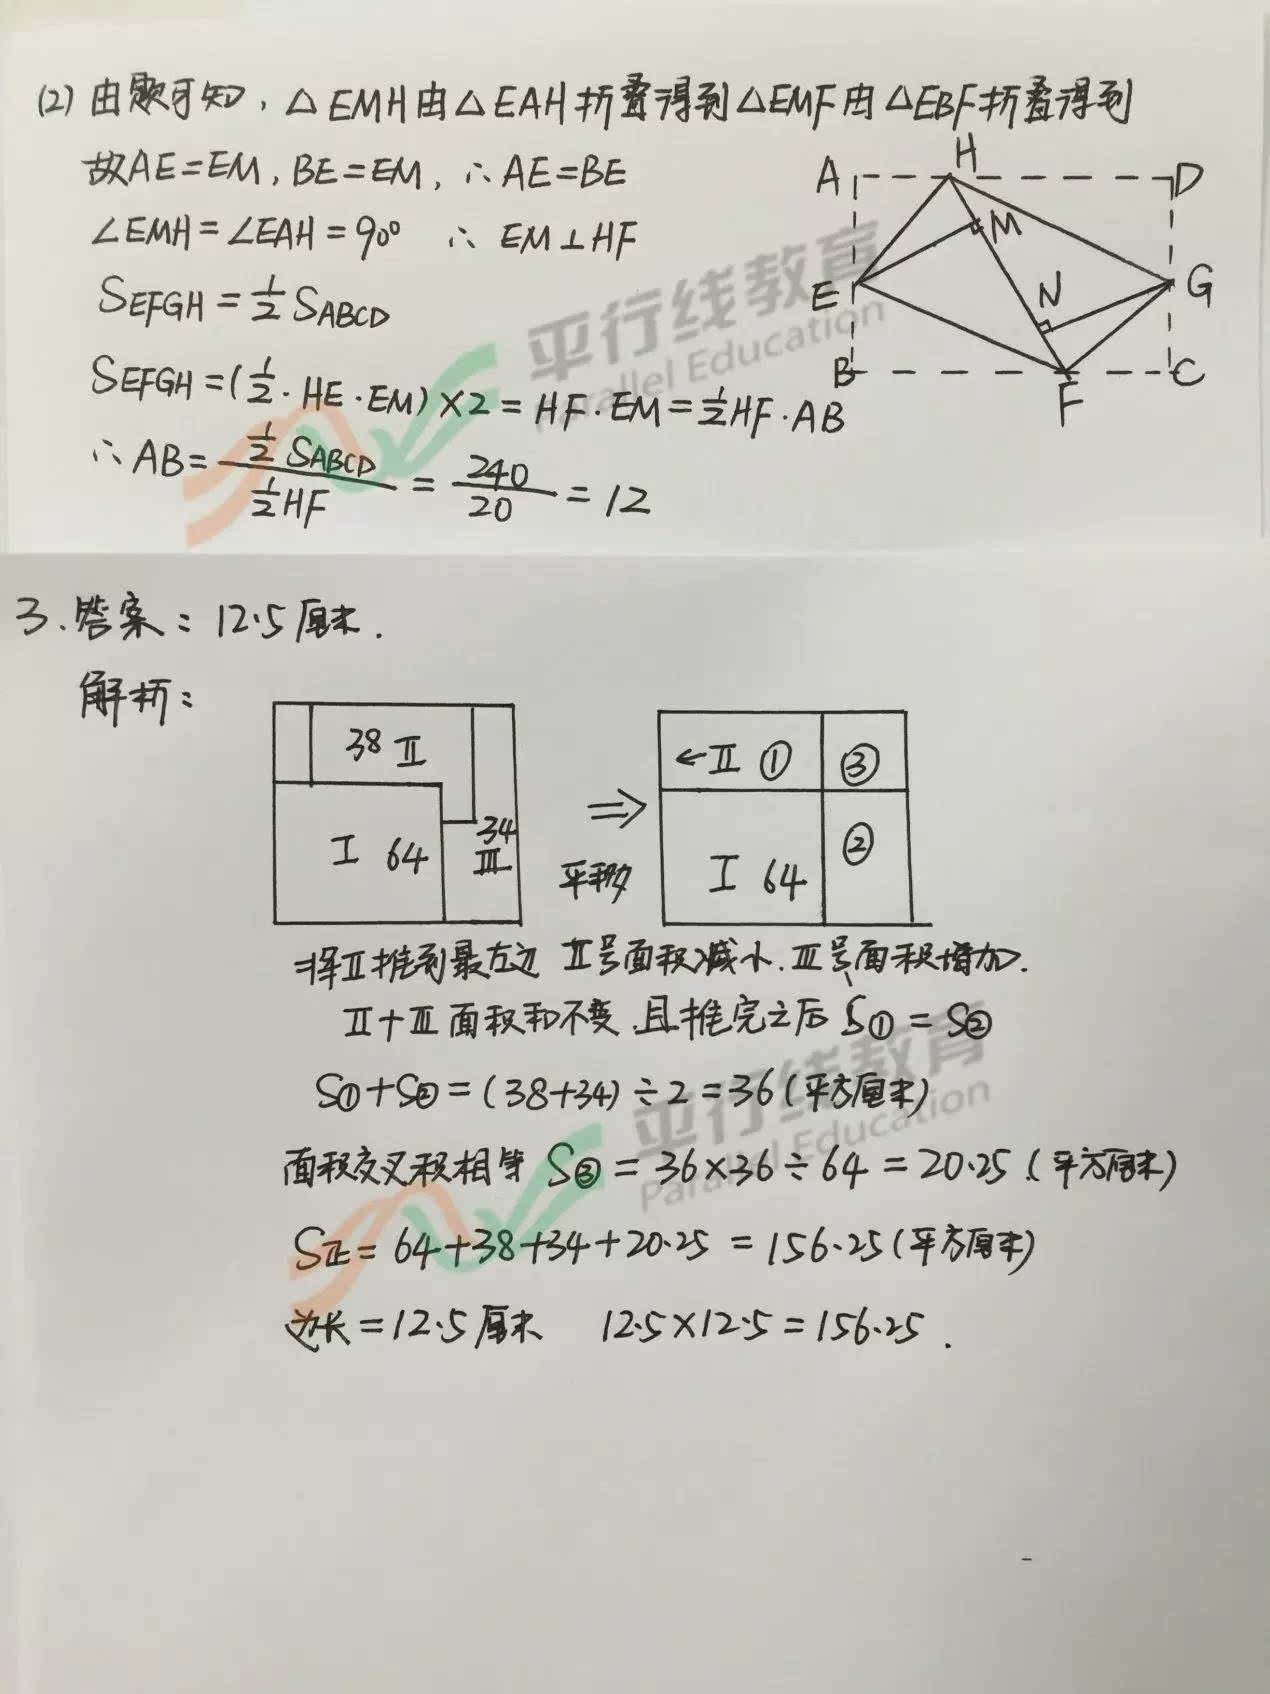 (2) 由题可知，△EMH由△EAH折叠得到△EMF由△EBF折叠得到
故AE=EM，BE=EM，∴AE=BE
∠EMH=∠EAH=90° ∴ EM⊥HF
SEFGH=1/2 SABCD
SEFGH=(1/2·HE·EM)×2=HF·EM=1/2HF·AB
∴AB=(1/2 SABCD)/(1/2HF)=240/20=12
A H D
M
E N G
B F C
平行线教育
Parallel Education
3.答案：12.5厘米.
解析：
38 Ⅱ
Ⅰ 64
34
Ⅲ
⇒
平移
←Ⅱ ① ③
Ⅰ 64 ②
择Ⅱ推到最左边 Ⅱ号面积减小.Ⅲ号面积增加.
Ⅱ+Ⅲ面积和不变 且推完之后 S①=S②
S①+S②=(38+34)÷2=36(平方厘米)
面积交叉积相等 S③=36×36÷64=20.25(平方厘米)
S正=64+38+34+20.25=156.25(平方厘米)
边长=12.5厘米 12.5×12.5=156.25.
平行线教育
Parallel Education